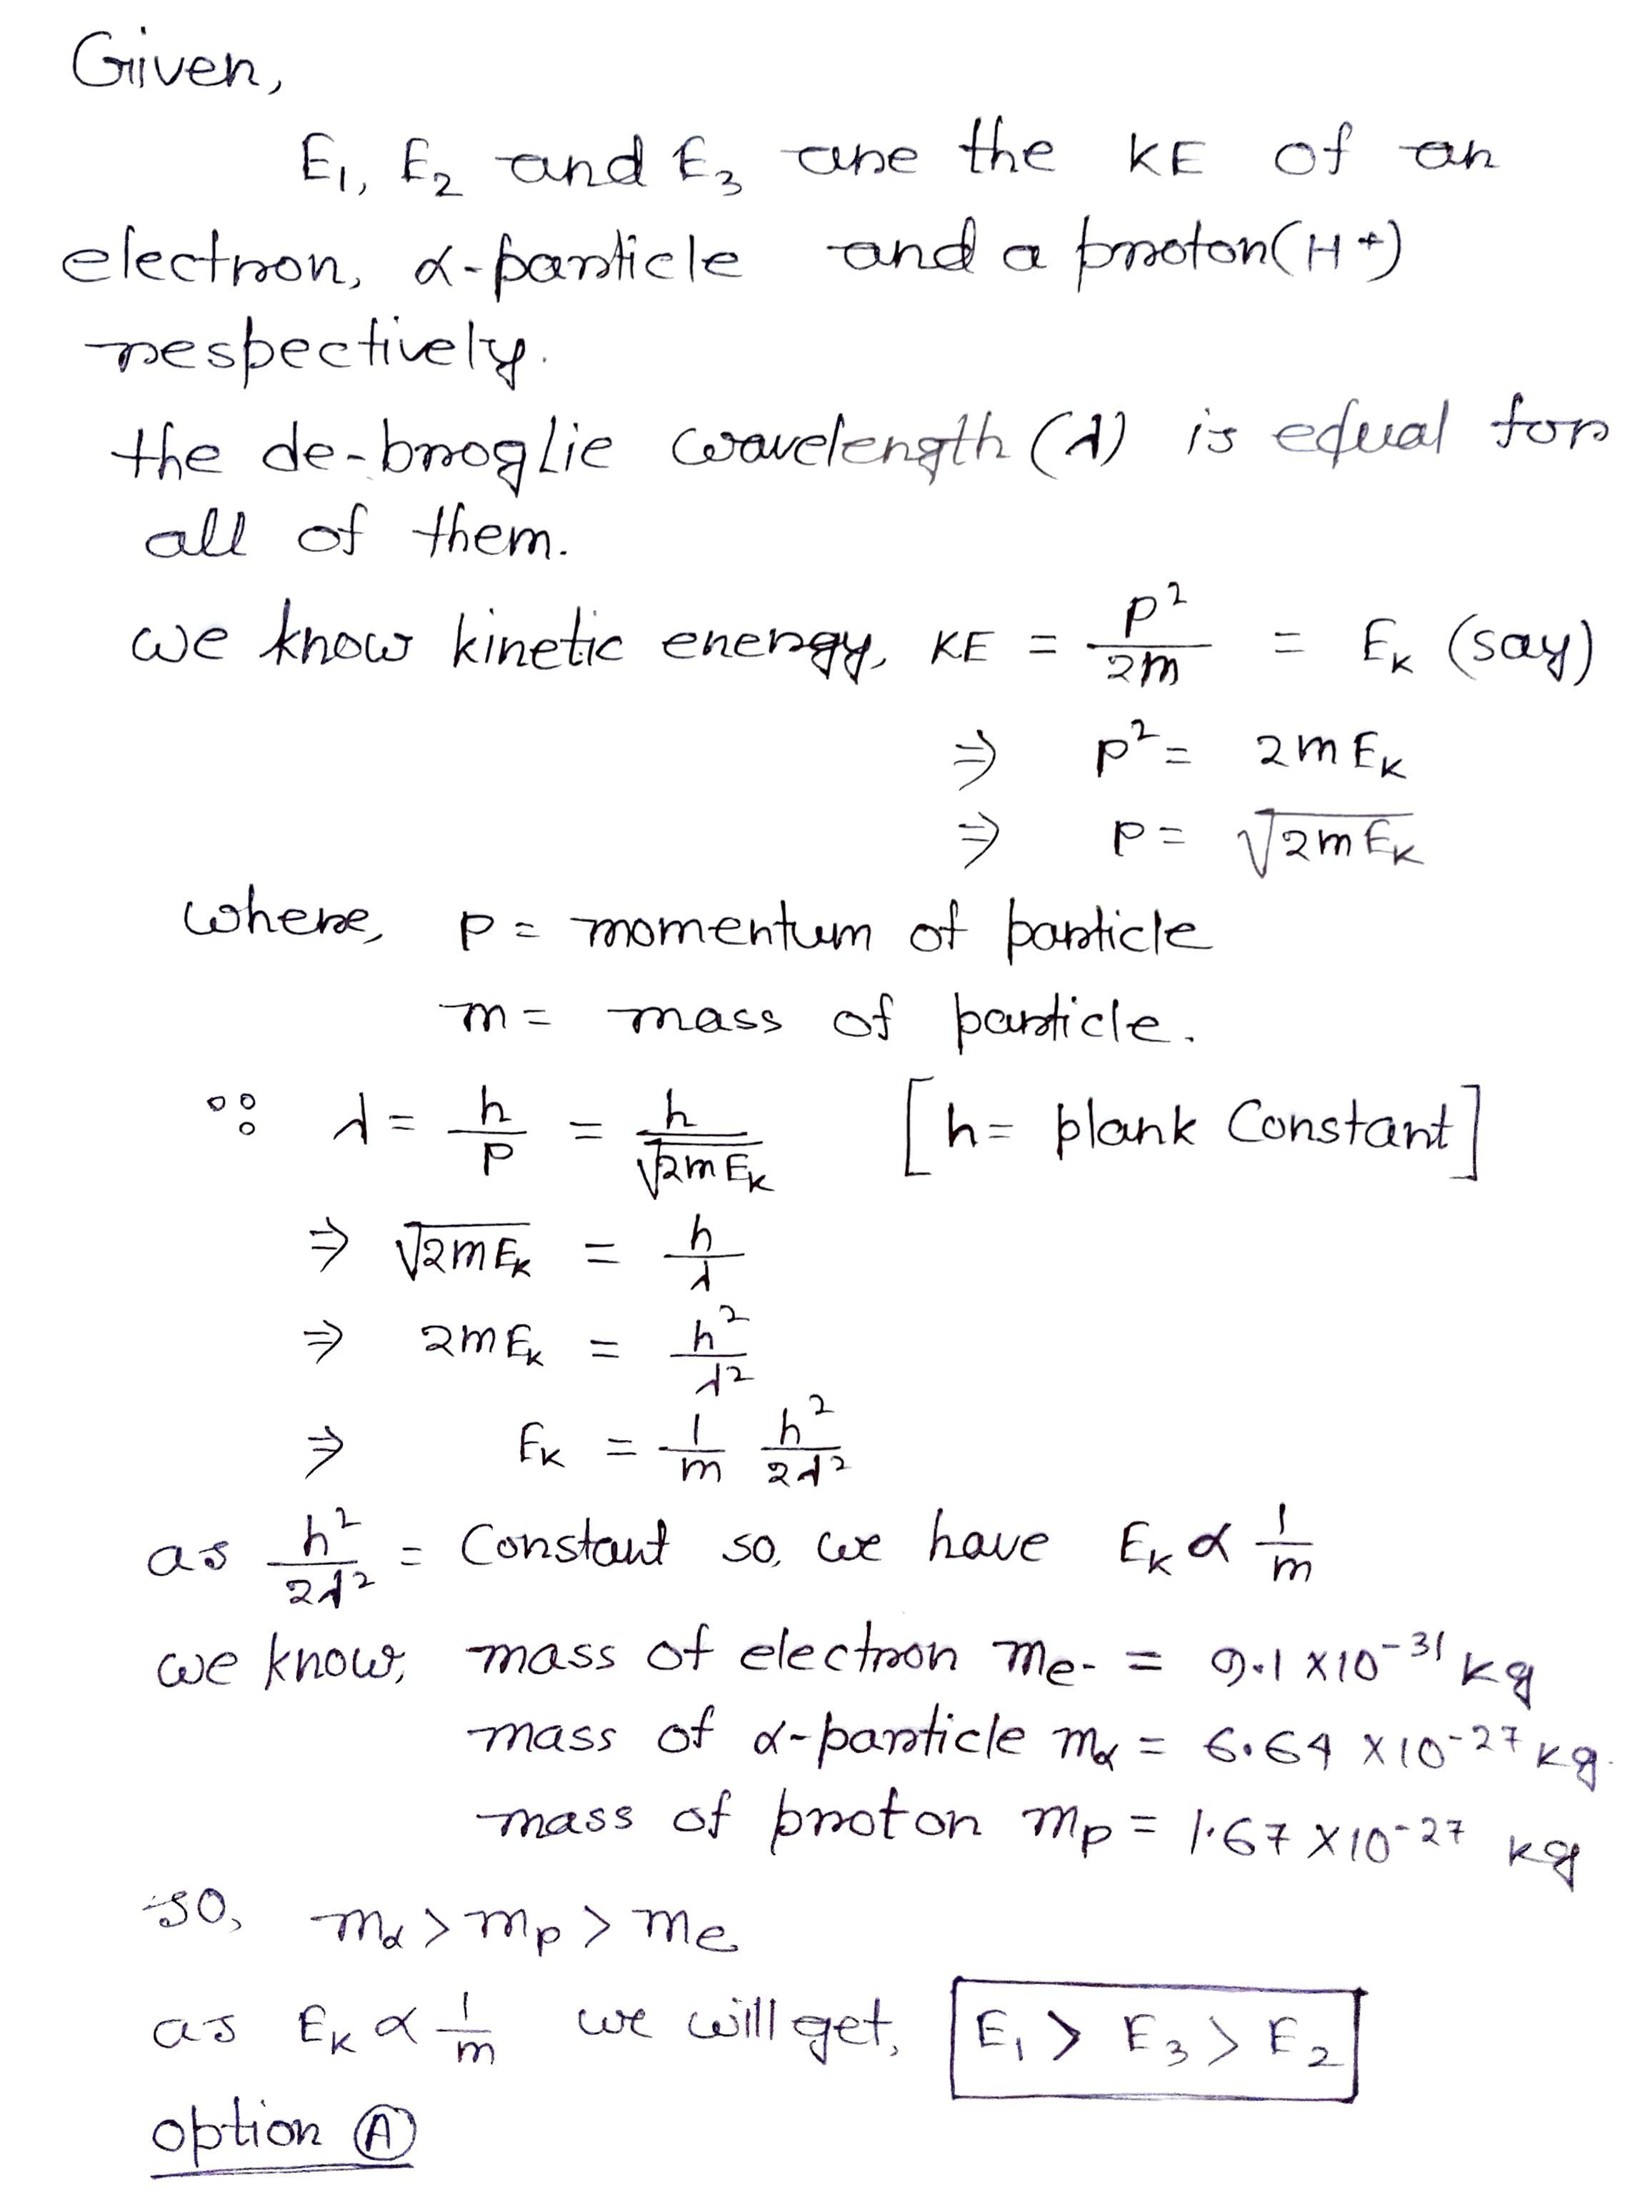 Given,
E₁, E₂ and E₃ are the KE of an
electron, α-particle and a proton(H⁺)
respectively.
the de-broglie wavelength (λ) is equal for
all of them.
we know kinetic energy, KE = p²/2m = E_K (say)
⇒ p² = 2mE_K
⇒ p = √(2mE_K)
where, p = momentum of particle
m = mass of particle.
∵ λ = h/p = h/√(2mE_K) [h = plank Constant]
⇒ √(2mE_K) = h/λ
⇒ 2mE_K = h²/λ²
⇒ E_K = 1/m h²/2λ²
as h²/2λ² = Constant so, we have E_K α 1/m
we know, mass of electron me- = 9.1 × 10⁻³¹ kg
mass of α-particle mα = 6.64 × 10⁻²⁷ kg.
mass of proton mp = 1.67 × 10⁻²⁷ kg
so, mα > mp > me
as E_K α 1/m we will get, E₁ > E₃ > E₂
option Ⓐ